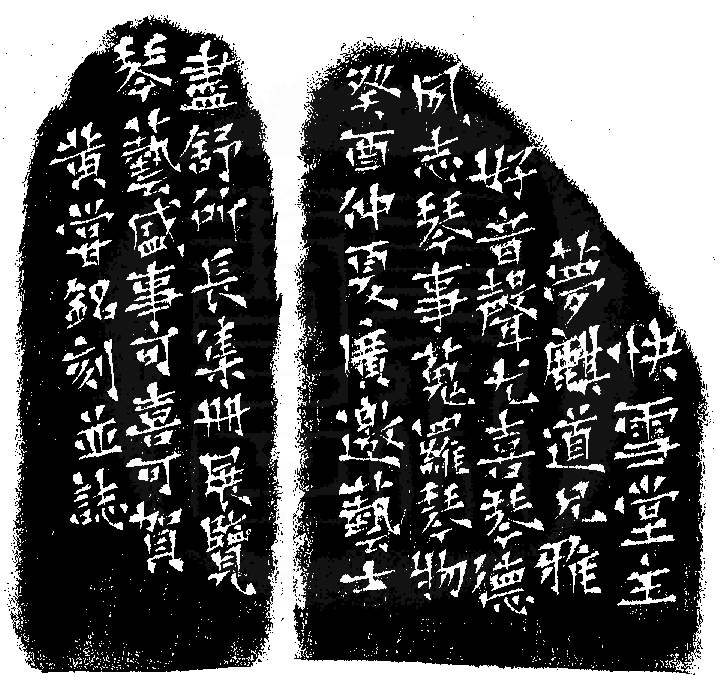 快雪堂主
夢麒道兄雅
好音聲尤喜琴德
夙志琴事蒐羅琴物
癸酉仲夏廣邀藝士
盡舒所長集冊展覽
琴藝盛事可喜可賀
黃甞銘刻並誌